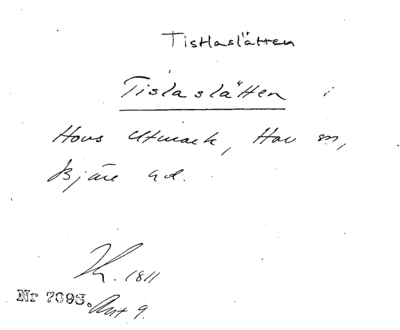 Tistlaslätten
Tislaslätten i
Hovs Utmark, Hov sn,
Bjäre hd.
1811
Nr 7095. Akt 9.